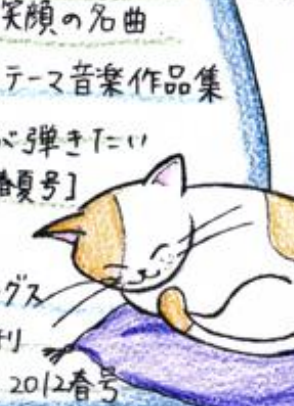 笑顔の名曲
テーマ音楽作品集
が弾きたい
春夏号]
グス
2012春号